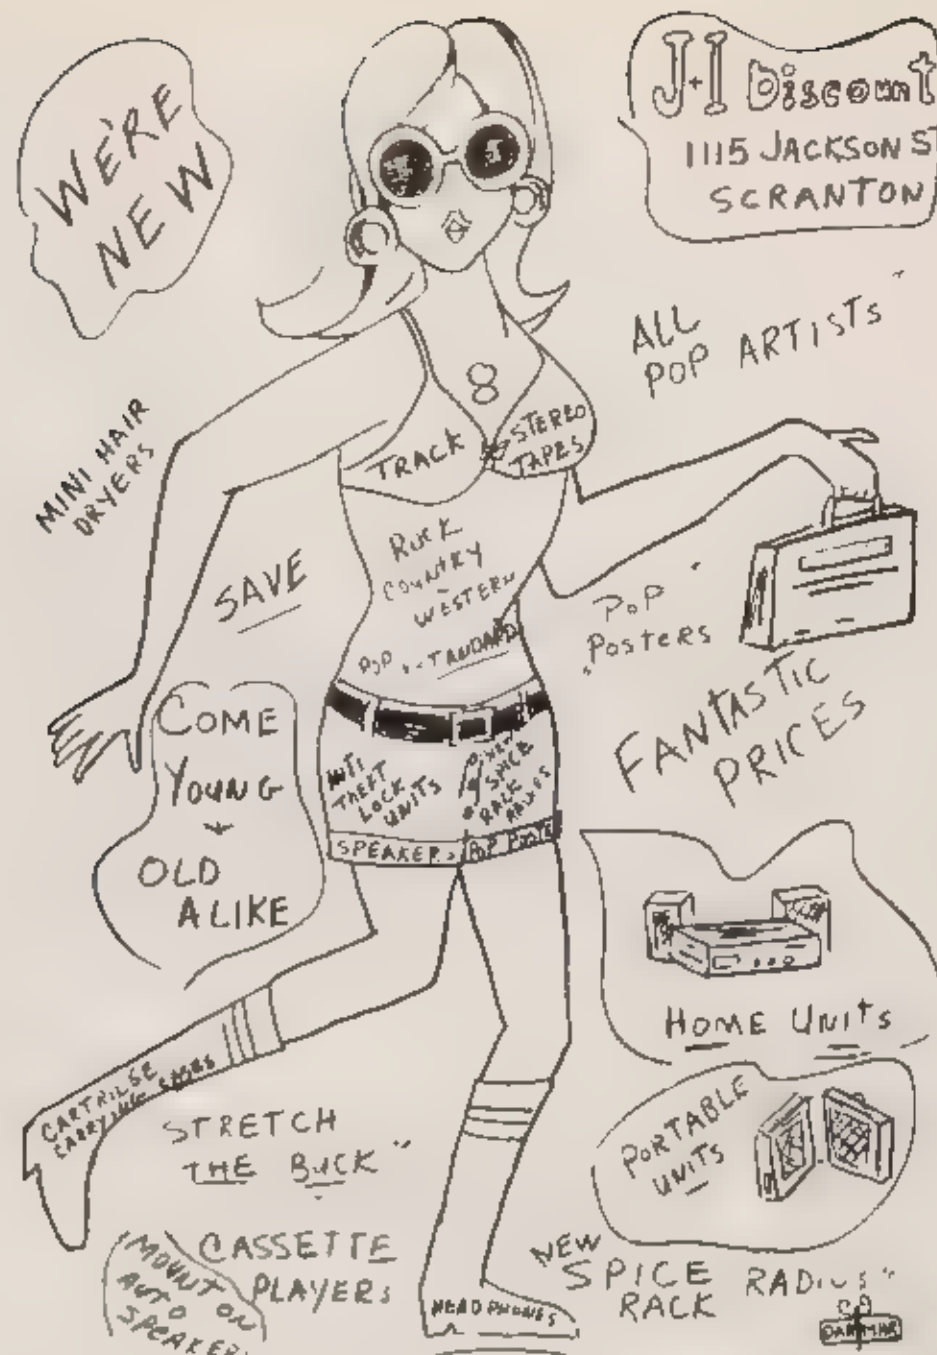 WE'RE
NEW
J+I Discount
1115 JACKSON ST
SCRANTON
ALL
POP ARTISTS"
MINI HAIR
DRYERS
8
TRACK
STEREO
TAPES
ROCK
COUNTRY
WESTERN
POP
SAVE
"POP"
POSTERS
FANTASTIC
PRICES
COME
YOUNG
+
OLD
ALIKE
ANTI
THEFT
LOCK
UNITS
SPICE
RACK
SPEAKER
POP POSTE
HOME UNITS
PORTABLE
UNITS
CARTRILSE
CARRYING CASES
STRETCH
THE BUCK"
CASSETTE
PLAYERS
MOUNT ON
AUTO
SPEAKER
HEADPHONES
NEW
SPICE
RACK